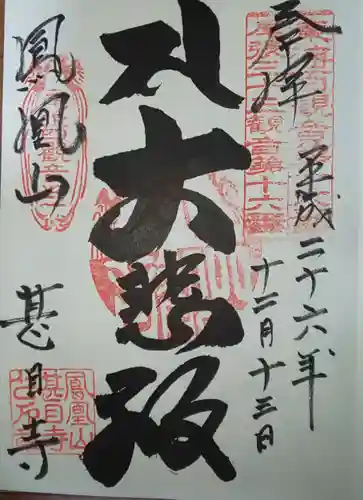 奉拝
平成二十六年
十二月十三日
尾張三十三観音第十六番
大悲殿
鳳凰山
甚目寺
鳳凰山
甚目寺